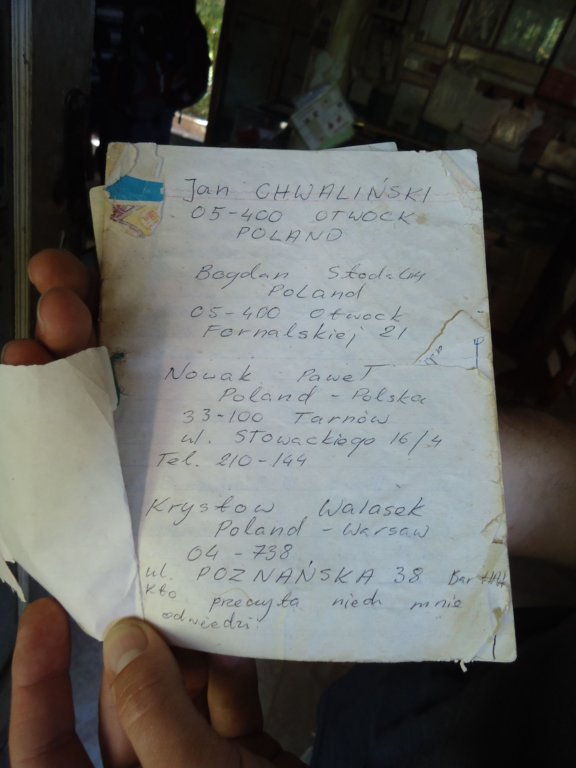 Jan CHWALIŃSKI
05-400 OTWOCK
POLAND
Bogdan
Poland
05-400 Otwock
Fornalskiej 21
Nowak Paweł
Poland - Polska
33-100 Tarnów
ul. Słowackiego 16/4
Tel. 210-144
Krystow Walasek
Poland - Warsaw
04-738
ul. POZNAŃSKA 38
Kto przeczyta niech mnie
odwiedzi!